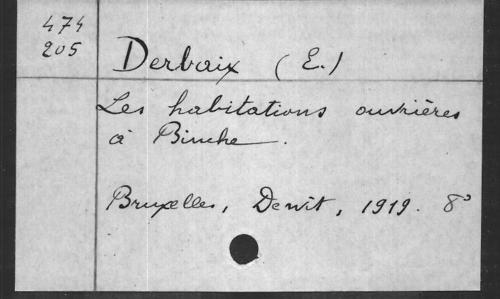 474
205
Derbaix (E.)
Les habitations ouvrières
à Binche.
Bruxelles, Dewit, 1919. 8°